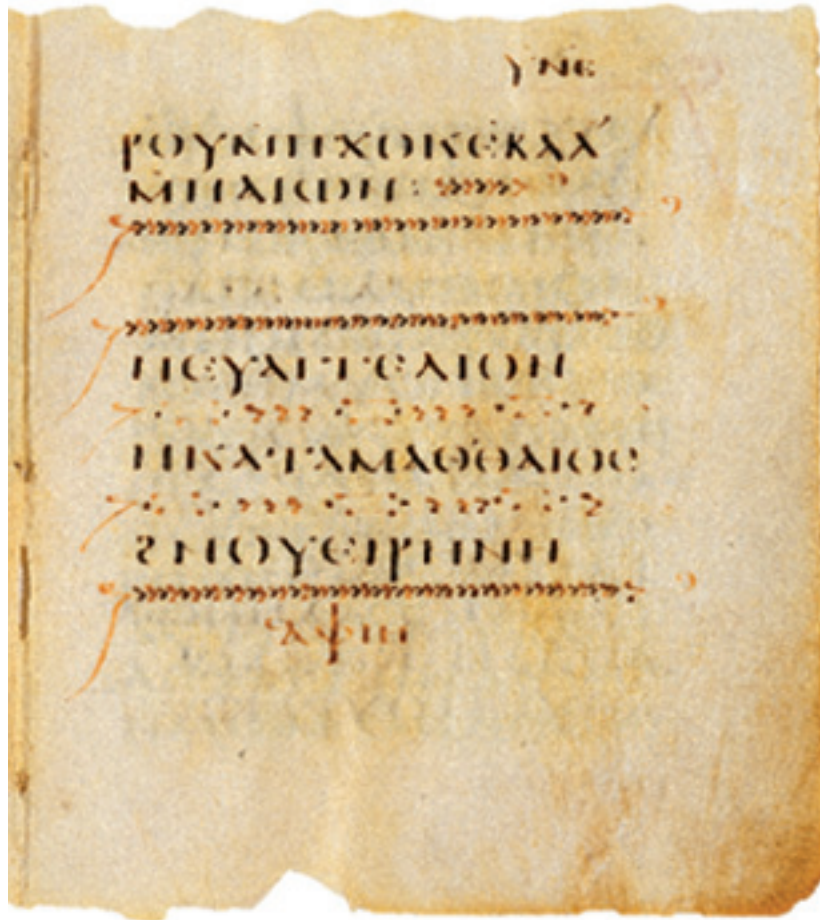 ⲩⲛⲉ
ⲣⲟⲩ ϫⲟⲕⲉⲃⲁⲗ
ⲙⲡⲁⲓⲱⲛ:
ⲡⲉⲩⲁⲅⲅⲉⲗⲓⲟⲛ
ⲛⲕⲁⲧⲁⲙⲁⲑⲑⲁⲓⲟⲥ
ϩⲛⲟⲩⲉⲓⲣⲏⲛⲏ